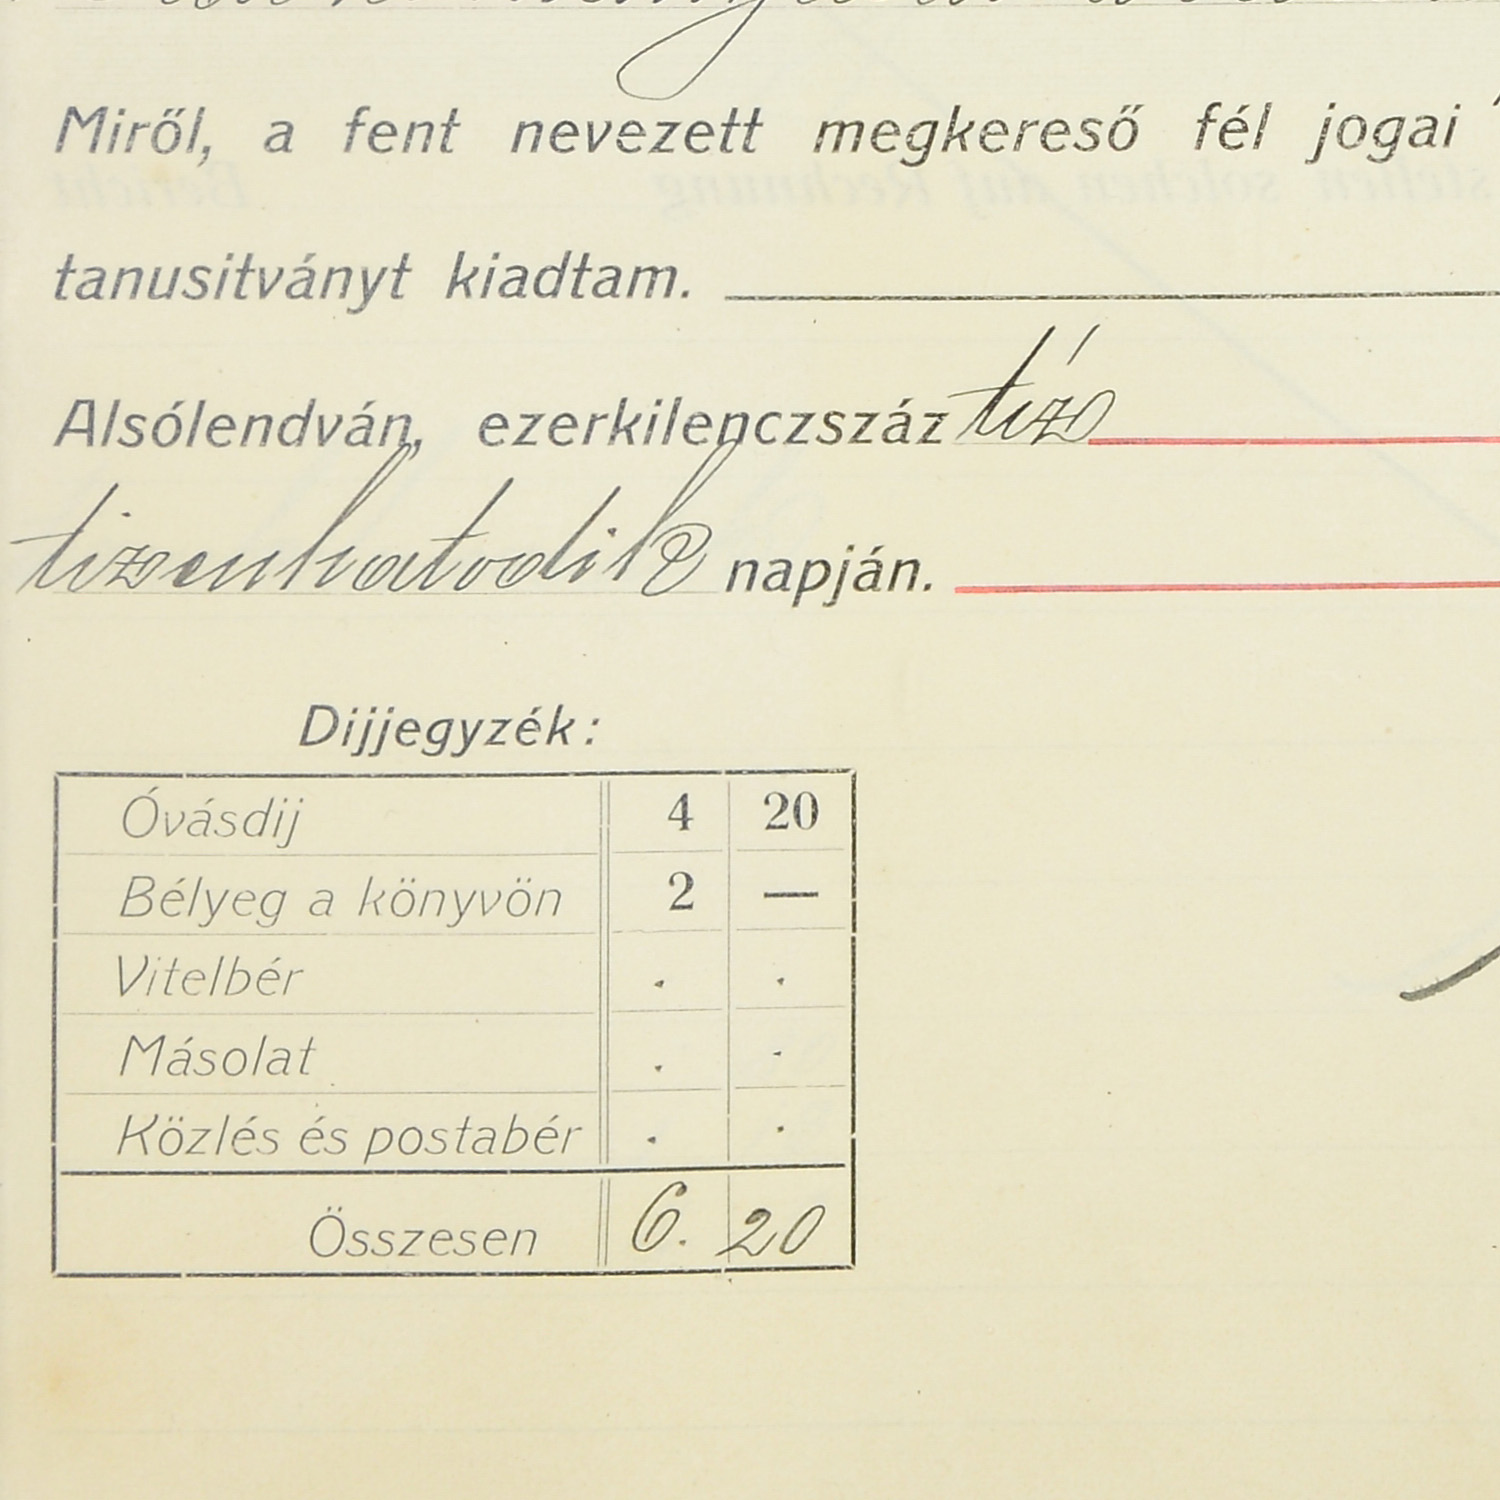 Miről, a fent nevezett megkereső fél jogai
tanusitványt kiadtam.
Alsólendván, ezerkilenczszáz tíz
tizenhatodik napján.
Dijjegyzék:
Óvásdij 4 20
Bélyeg a könyvön 2 —
Vitelbér . .
Másolat . .
Közlés és postabér . .
Összesen 6. 20